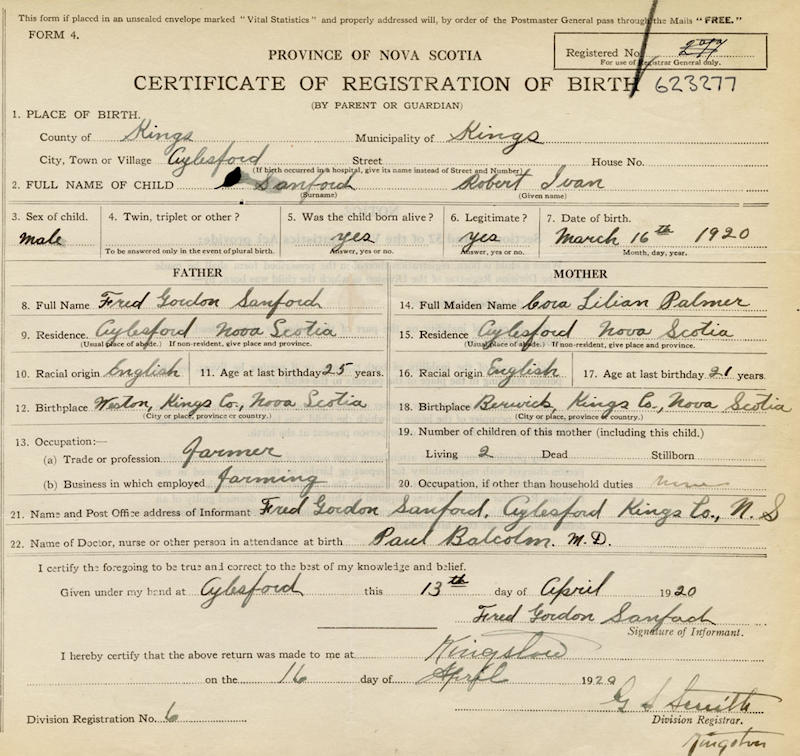 This form if placed in an unsealed envelope marked "Vital Statistics" and properly addressed will, by order of the Postmaster General pass through the Mails "FREE."
FORM 4.
Registered No. 277
For use of Registrar General only.
PROVINCE OF NOVA SCOTIA
CERTIFICATE OF REGISTRATION OF BIRTH 623277
(BY PARENT OR GUARDIAN)
1. PLACE OF BIRTH.
County of Kings Municipality of Kings
City, Town or Village Aylesford Street House No.
(If birth occurred in a hospital, give its name instead of Street and Number)
2. FULL NAME OF CHILD Sanford Robert Ivan
(Surname) (Given name)
3. Sex of child. 4. Twin, triplet or other? 5. Was the child born alive? 6. Legitimate? 7. Date of birth.
male yes yes March 16th 1920
To be answered only in the event of plural birth. Answer, yes or no. Answer, yes or no. Month, day, year.
FATHER
8. Full Name Fred Gordon Sanford
9. Residence. Aylesford Nova Scotia
(Usual place of abode.) If non-resident, give place and province.
10. Racial origin English 11. Age at last birthday 25 years.
12. Birthplace Weston, Kings Co., Nova Scotia
(City or place, province or country.)
13. Occupation:—
(a) Trade or profession farmer
(b) Business in which employed farming
MOTHER
14. Full Maiden Name Cora Lilian Palmer
15. Residence Aylesford Nova Scotia
(Usual place of abode.) If non-resident, give place and province.
16. Racial origin English 17. Age at last birthday 21 years.
18. Birthplace Berwick, Kings Co., Nova Scotia
(City or place, province or country.)
19. Number of children of this mother (including this child.)
Living 2 Dead Stillborn
20. Occupation, if other than household duties none
21. Name and Post Office address of Informant Fred Gordon Sanford, Aylesford Kings Co., N. S
22. Name of Doctor, nurse or other person in attendance at birth Paul Balcolm. M.D.
I certify the foregoing to be true and correct to the best of my knowledge and belief.
Given under my hand at Aylesford this 13th day of April 1920
Fred Gordon Sanford
Signature of Informant.
I hereby certify that the above return was made to me at Kingston
on the 16 day of April 1920
G S Smith
Division Registration No. 6 Division Registrar.
Kingston